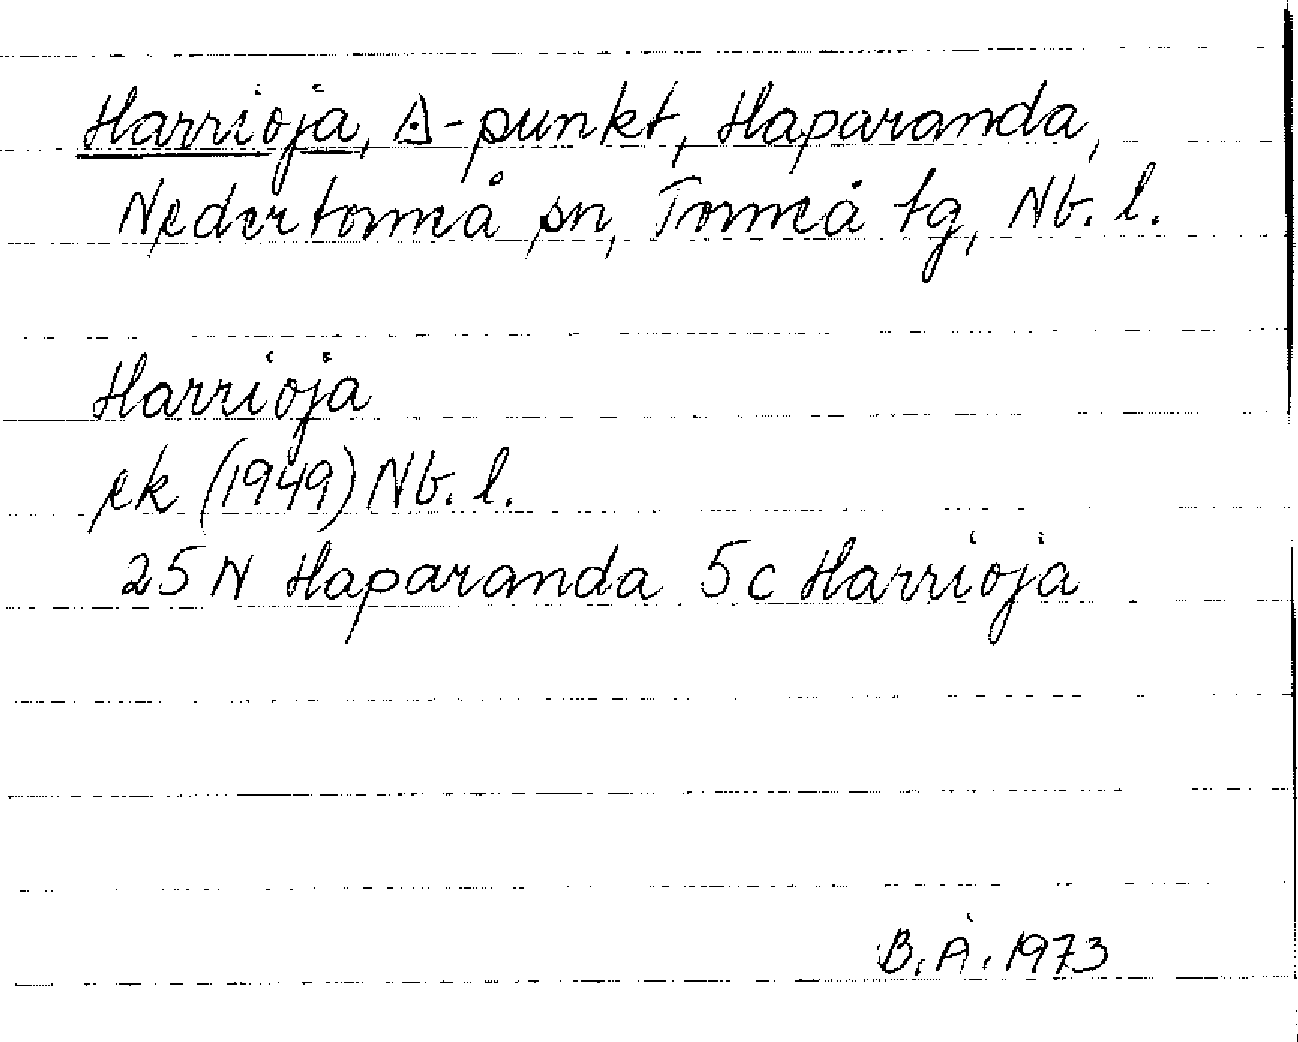 Harrioja, ◬-punkt, Haparanda,
Nedertorneå sn, Torneå tg, Nb. l.
Harrioja
ek (1949) Nb. l.
25 N Haparanda 5c Harrioja
B. Å. 1973